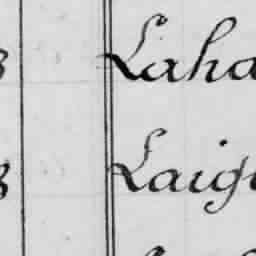 3 Laha
3 Laig